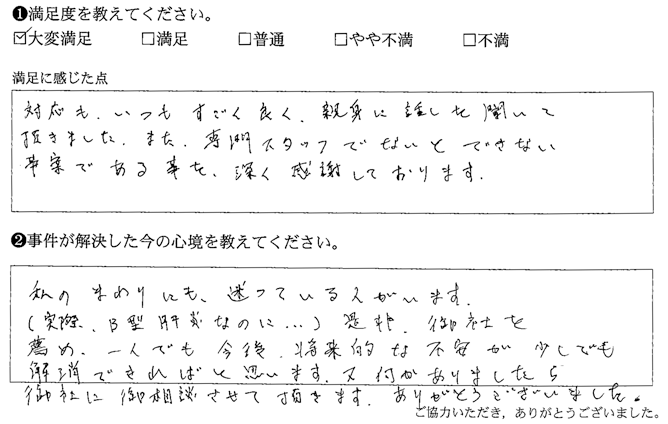 ❶満足度を教えてください。
☑大変満足 □満足 □普通 □やや不満 □不満
満足に感じた点
対応も、いつもすごく良く、親身に話しを聞いて
頂きました。また、専門スタッフでないとできない
事案である事を、深く感謝しております。
❷事件が解決した今の心境を教えてください。
私のまわりにも、迷っている人がいます。
(実際、B型肝炎なのに…) 是非、御社を
薦め、一人でも今後、将来的な不安が少しでも
解消できればと思います。又何かありましたら
御社に御相談させて頂きます。ありがとうございました。
ご協力いただき，ありがとうございました。